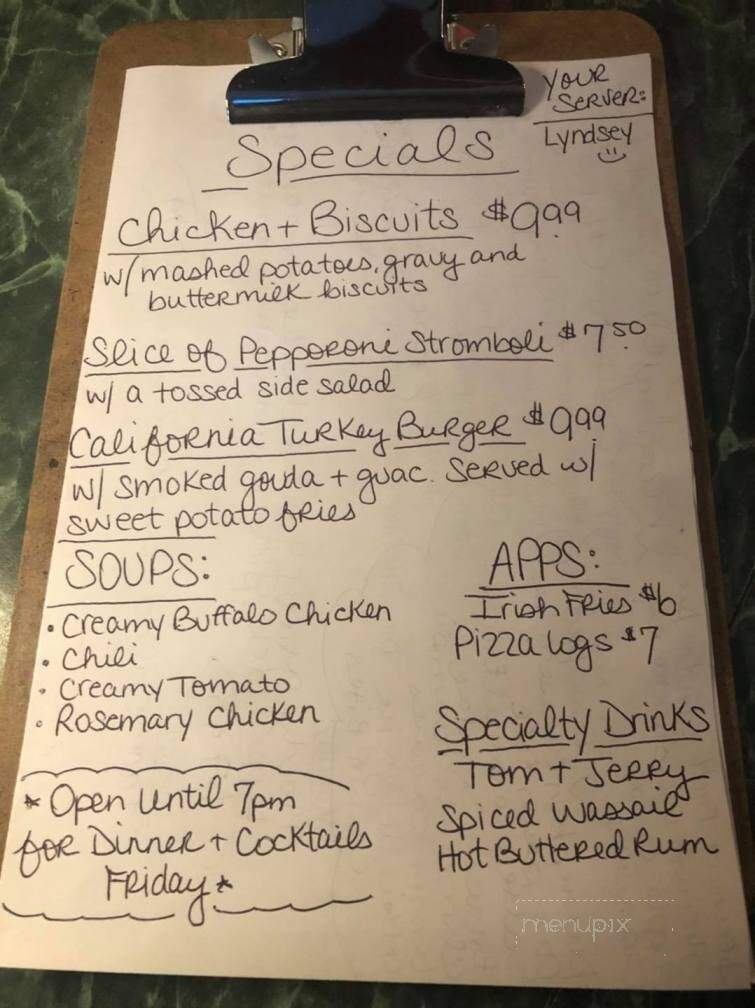 YOUR
SERVER:
Lyndsey
Specials
Chicken + Biscuits $9.99
w/ mashed potatoes, gravy and
buttermilk biscuits
Slice of Pepporoni Stromboli $7.50
w/ a tossed side salad
California Turkey Burger $9.99
w/ smoked gouda + guac. served w/
sweet potato fries
SOUPS:
• Creamy Buffalo Chicken
• Chili
• Creamy Tomato
• Rosemary Chicken
* Open Until 7pm
for Dinner + Cocktails
Friday *
APPS:
Irish Fries $6
Pizza Logs $7
Specialty Drinks
Tom + Jerry
Spiced Wassail
Hot Buttered Rum
menupix